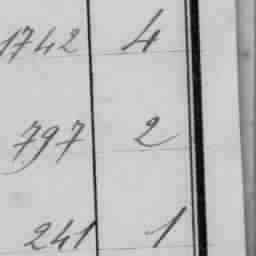 1742 4
797 2
241 1